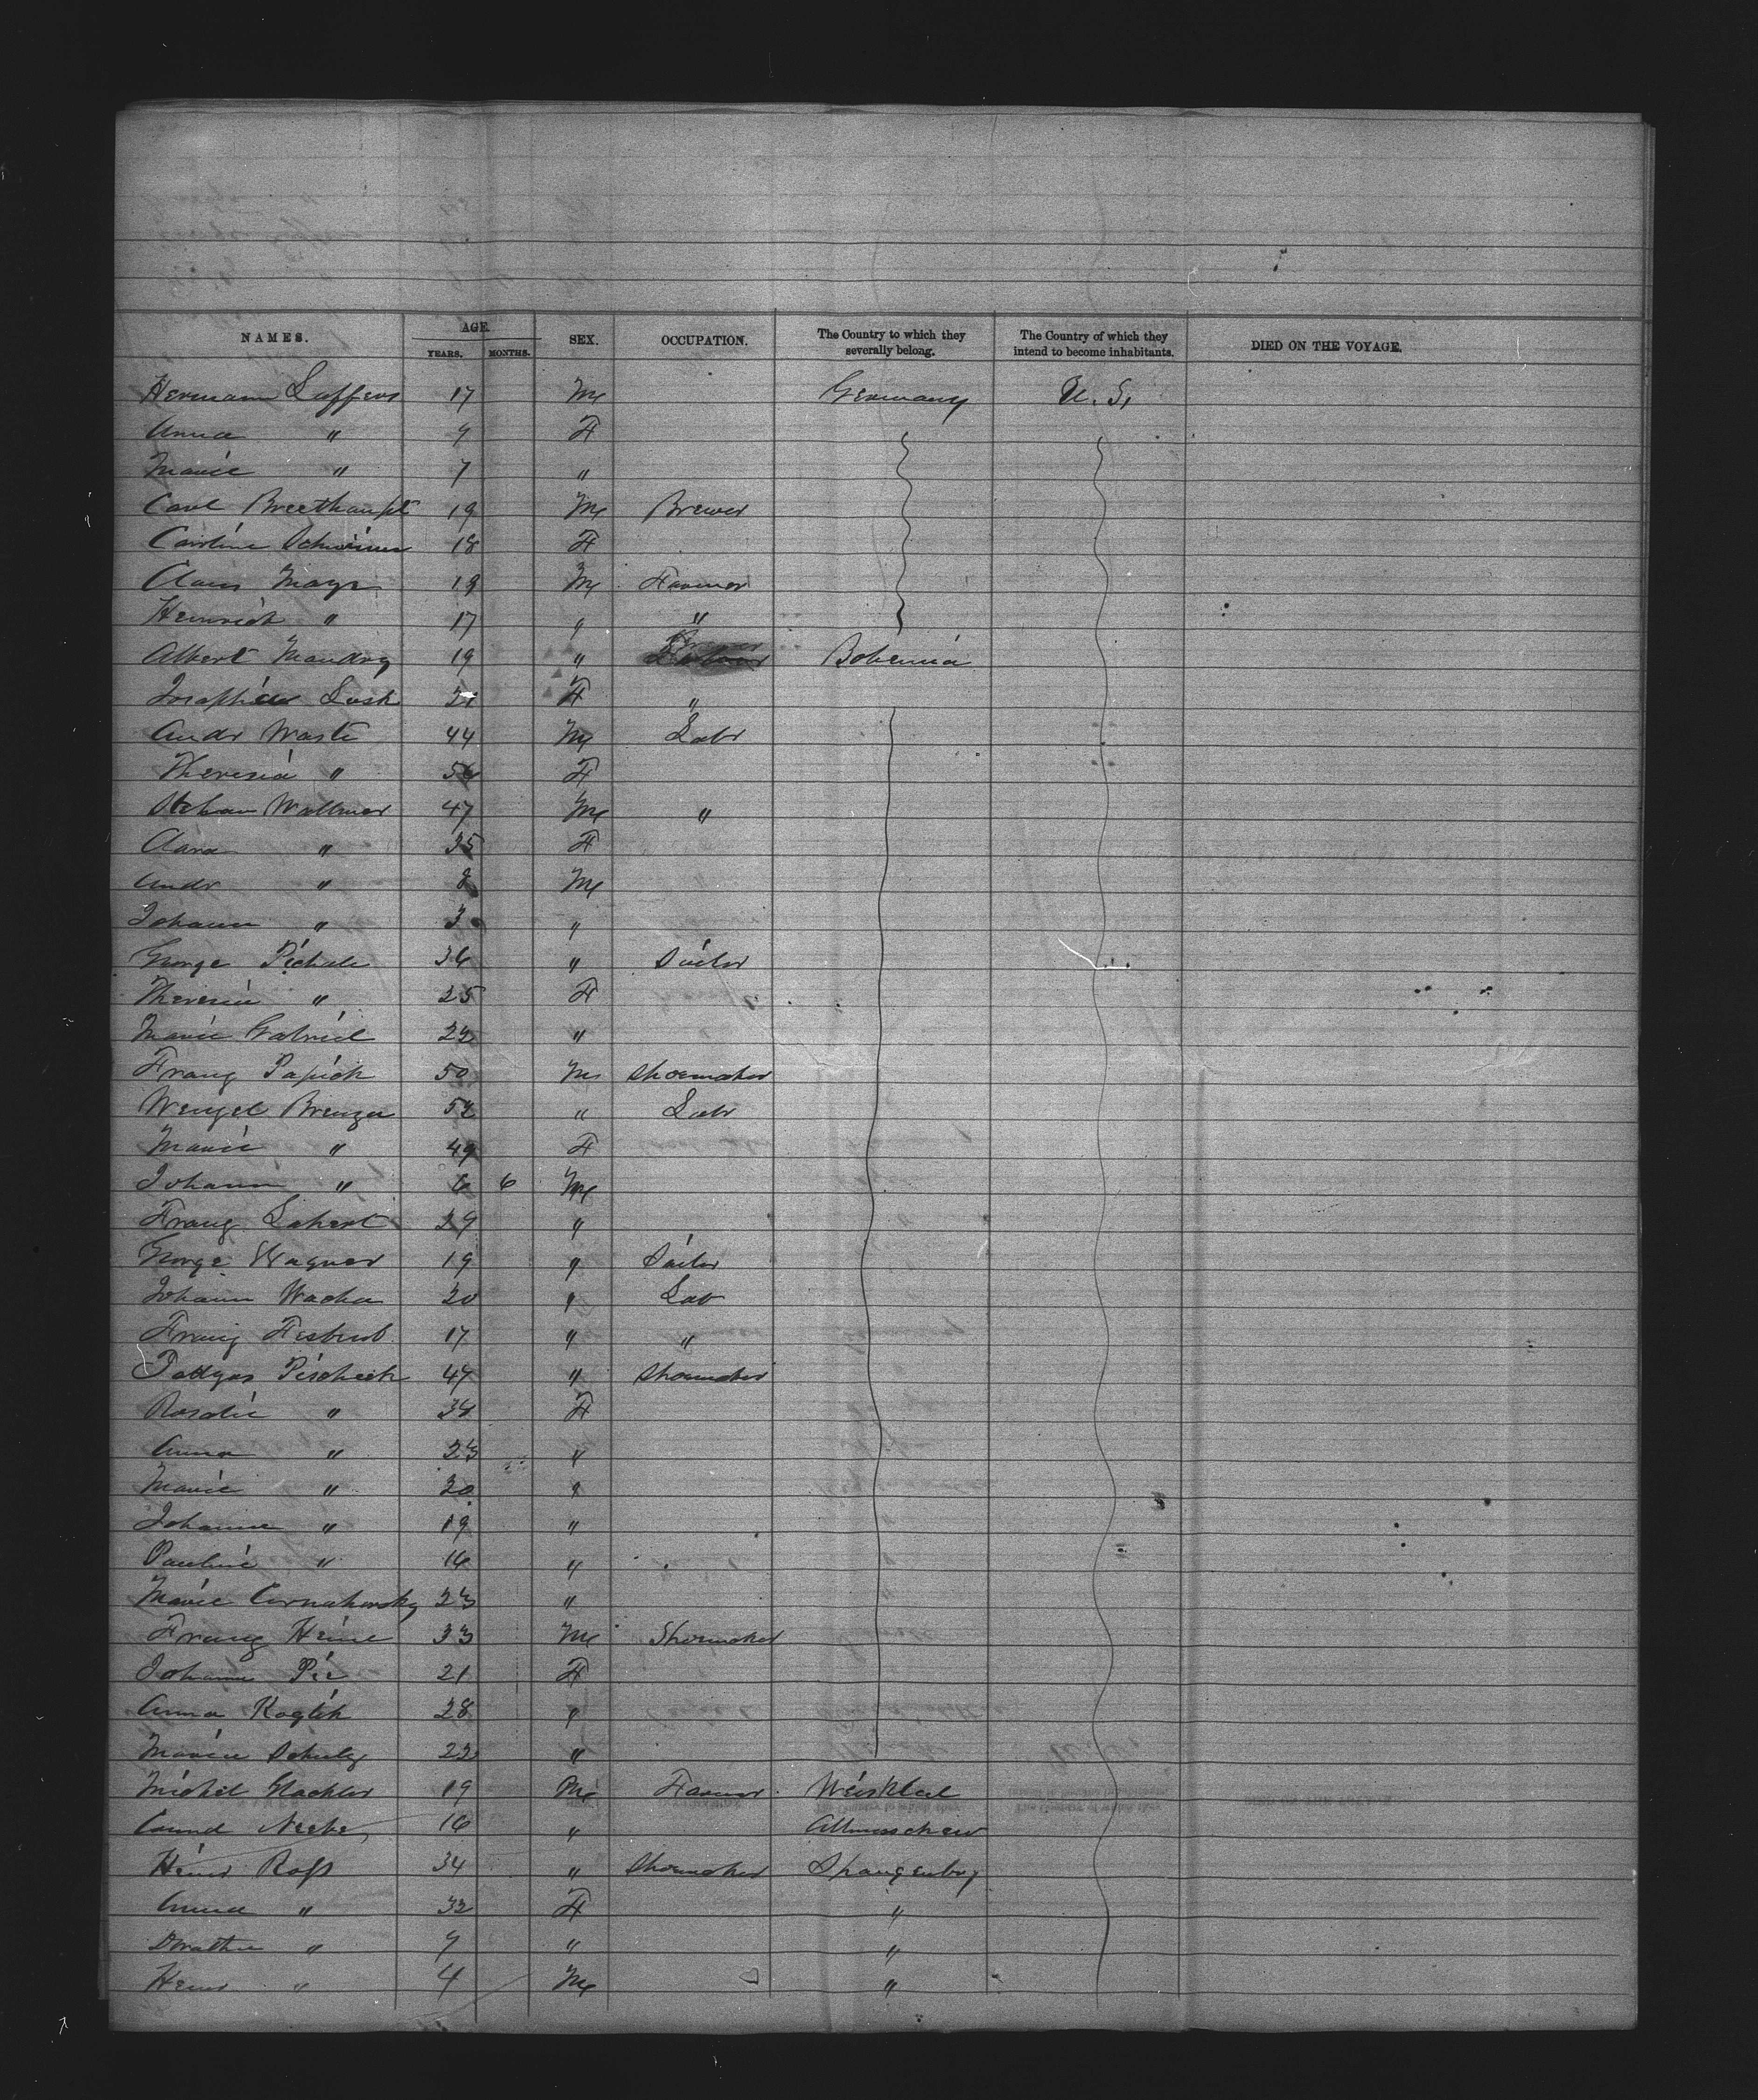 NAMES. AGE. YEARS. MONTHS. SEX. OCCUPATION. The Country to which they severally belong. The Country of which they intend to become inhabitants. DIED ON THE VOYAGE.
Hermann Luffers 17 M Germany U. S.
Anna " 9 F
Marie " 7 "
Carl Breethaupt 19 M Brewer
Caroline 18 F
Claus Mayr 19 M Farmer
Heinrich " 17 " "
Albert Mandry 19 " Bohemia
Lusk F "
Andr Wasti 44 M Labr
Theresia " F
Stehan Wallner 47 M "
Clara " 35 F
Andr " 8 M
Johann " 3 "
George Pichale 36 " Sailor
Theresia " 25 F
Marie Gabriel 22 "
Franz Papich 50 M Shoemaker
Wenzel Brenza 52 " Labr
Marie " 49 F
Johann " 6 M
Franz Lahert 29 "
George Wagner 19 " Sailor
Johann Wacha 20 " Lab
Franz 17 " "
Pischeck 47 " Shoemaker
Rosalie " 38 F
Anna " 23 "
Marie " 20 "
Johanne " 19 "
Pauline " 16 "
Marie 23 "
Franz Heine 33 M Shoemaker
Johann Pic 21 F
Anna Koglik 28 "
Marie Schulz 22 "
Michel Glackler 19 M Farmer
Neebe 16 "
Heinr Ross 34 " Shoemaker Spangenbrg
Anna " 32 F "
Dorathe " 9 " "
Heinr " 4 M "